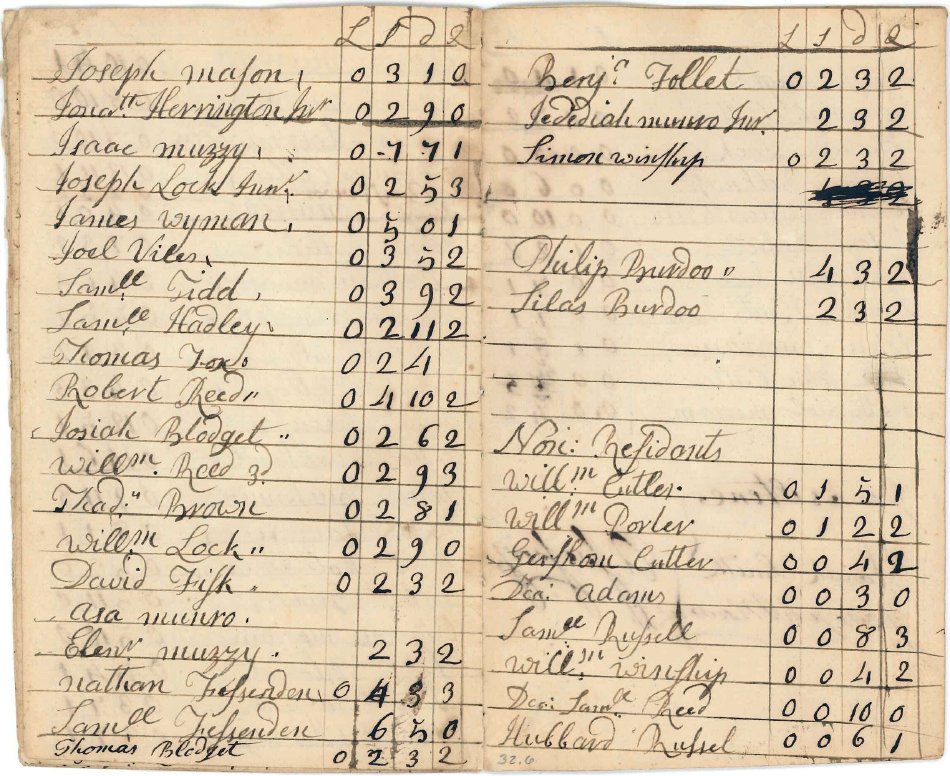 L S d Q
Joseph mason, 0 3 1 0
Jonatn Herrington Jnr 0 2 9 0
Isaac muzzy, 0 7 7 1
Joseph Lock Junr, 0 2 5 3
James wyman, 0 5 0 1
Joel Viles, 0 3 5 2
Samll Tidd, 0 3 9 2
Samll Hadley, 0 2 11 2
Thomas Fox, 0 2 4
Robert Reed" 0 4 10 2
Josiah Blodget " 0 2 6 2
Willm. Reed 3d. 0 2 9 3
Thad:" Brown 0 2 8 1
Willm Lock " 0 2 9 0
David Fisk " 0 2 3 2
asa munro.
Elenr muzzy. 2 3 2
nathan Fessenden 0 4 3 3
Samll Fessenden 6 5 0
Thomas Blodget 0 2 3 2
L S d Q
Benja Follet 0 2 3 2
Jedediah munro Jnr. 2 3 2
Simon winship 0 2 3 2
Philip Burdoo " 4 3 2
Silas Burdoo 2 3 2
Non: Residants
Willm Cutler. 0 1 5 1
Willm Porter 0 1 2 2
Gershom Cutter 0 0 4 2
Dea: Adams 0 0 3 0
Samll Russell 0 0 8 3
Willm winship 0 0 4 2
Dea: Samll Reed 0 0 10 0
Hubbard Russel 0 0 6 1
32.6